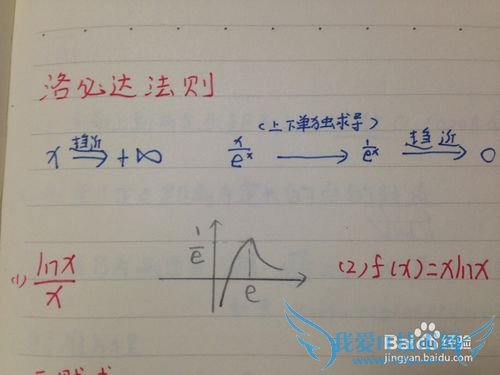 洛必达法则
x 趋近→ +∞ x/e^x (上下单独求导)→ 1/e^x 趋近→ 0
(1) lnx/x 1/e e (2) f(x)=xlnx
Baidu 经验
jingyan.baidu.com